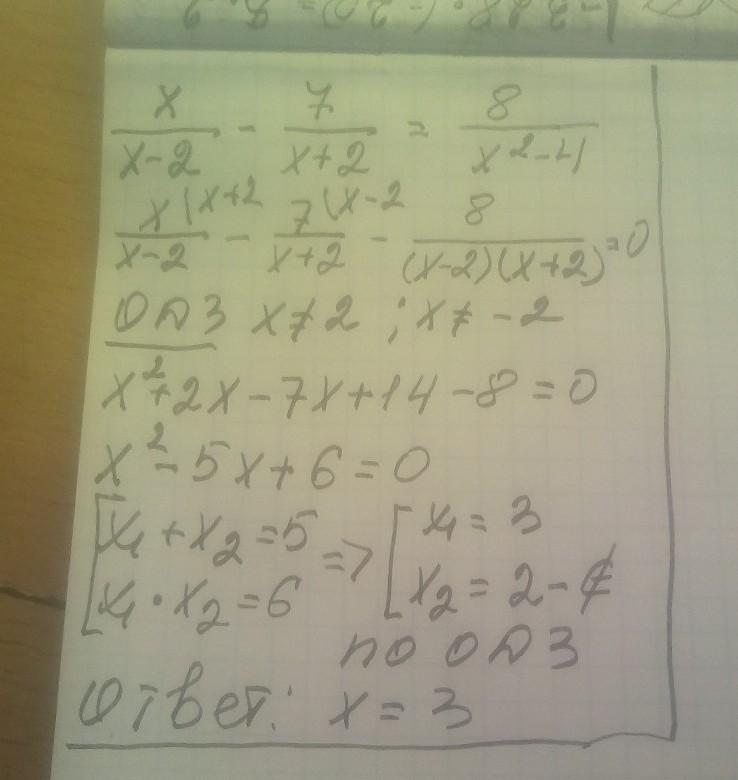 x/(x-2) - 7/(x+2) = 8/(x²-4)
x\x+2/(x-2) - 7\x-2/(x+2) - 8/((x-2)(x+2)) = 0
ОДЗ x≠2 ; x≠-2
x²+2x-7x+14-8=0
x²-5x+6=0
[x₁+x₂=5 => [x₁=3
[x₁·x₂=6 [x₂=2-∉
по ОДЗ
Ответ: x=3